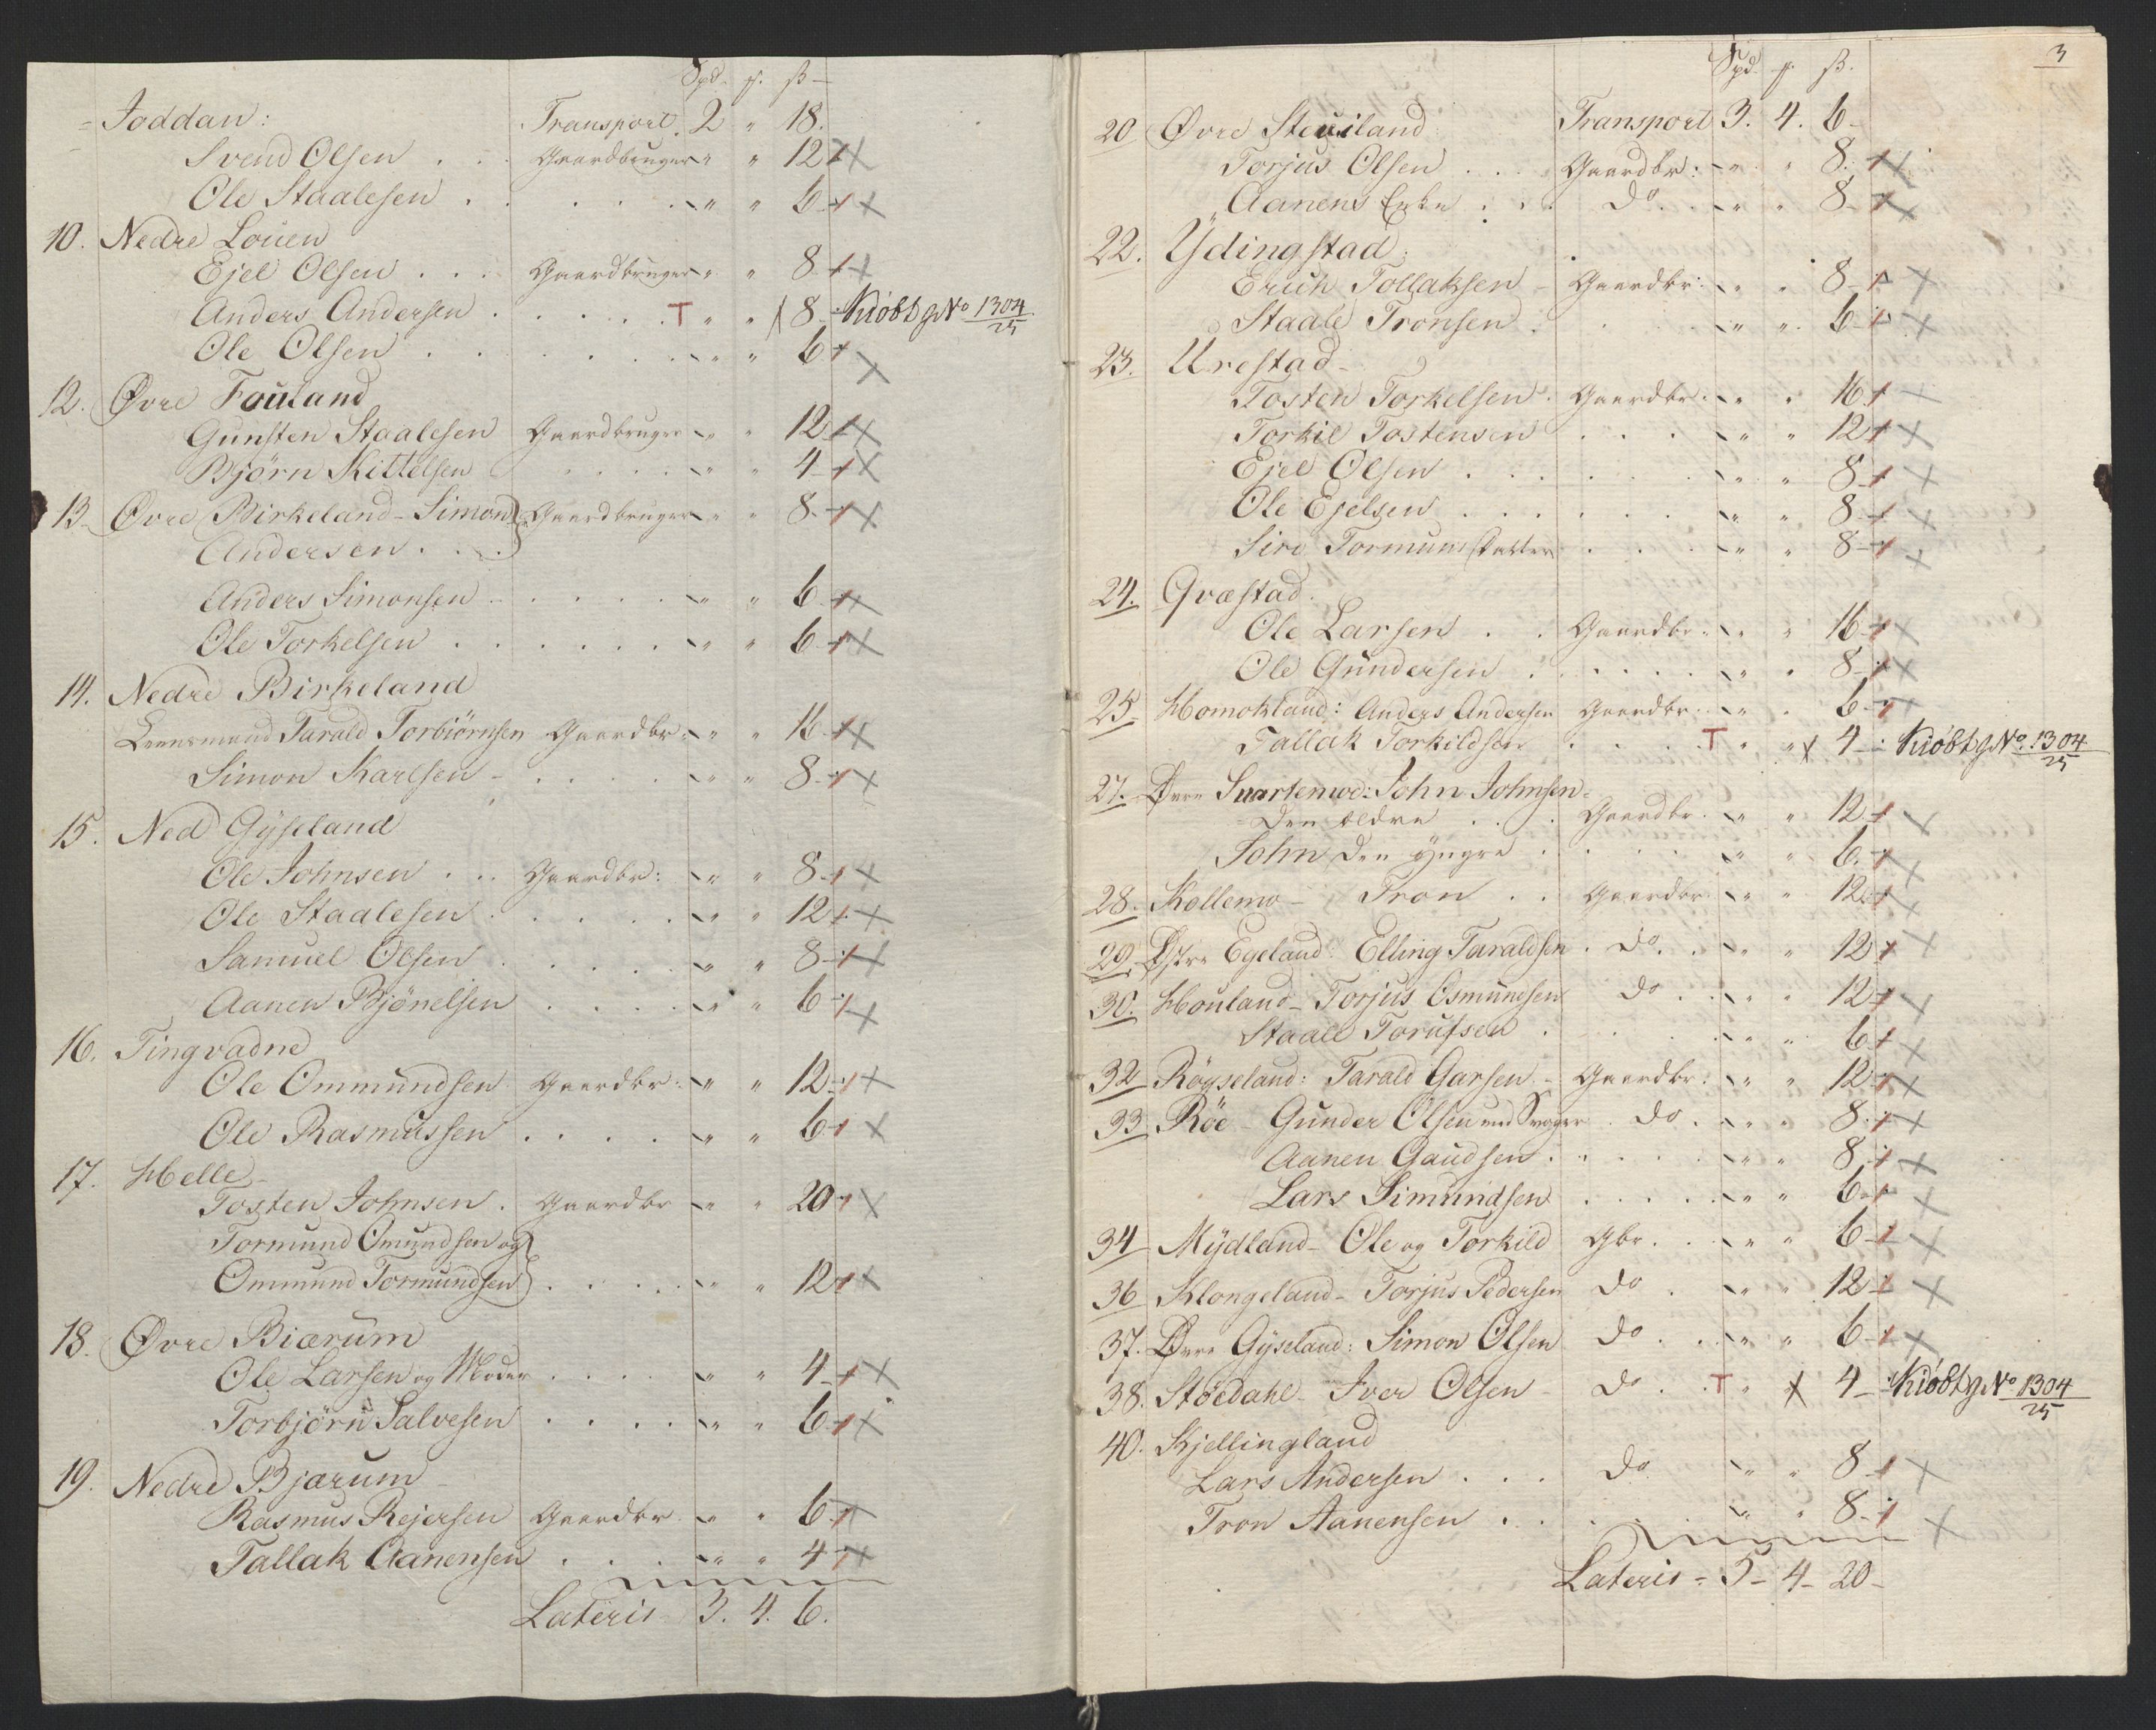 Spd. ƒ. ß
Joddan: Transport. 2 " 18.
Svend Olsen . . . Gaardbruger " " 12
Ole Staalesen . . . . . . " " 6
10. Nedre Louen
Ejel Olsen . . . Gaardbruger " " 8
Anders Andersen . . . . . T " " 8 Kiöbt gNo 1304/25
Ole Olsen . . . . . . " " 6
12. Øvre Fouland
Gunsten Staalesen Gaardbruger " " 12
Björn Kittelsen . . . . " " 4
13. Øvre Birkeland - Simon Gaardbruger " " 8
Andersen . . .
Anders Simonsen . . . . . " " 6
Ole Torkelsen . . . . . . " " 6
14. Nedre Birkeland
Leensmand Tarald Torbiörnsen Gaardbr: " " 16
Simon Karlsen . . . . . " " 8
15. Ned Gÿseland
Ole Johnsen . . . Gaardbr: " " 8
Ole Staalesen . . . . . " " 12
Samuel Olsen . . . . . " " 8
Aanen Bjönelsen . . . . " " 6
16. Tingvadne
Ole Ommundsen Gaardbr: " " 12
Ole Rasmussen . . . . " " 6
17. Helle
Tosten Johnsen . Gaardbr " " 20
Tormund Omundsen og
Ommund Tormundsen . . . . " " 12
18. Øvre Biærum
Ole Larsen og Moder . . . . " " 4
Torbjörn Salvesen . . . . " " 6
19. Nedre Bjærum
Rasmus Rejersen Gaardbr " " 6
Tallak Aanensen . . . " " 4
Lateris 3. 4. 6.
3
Spd. ƒ. ß.
20 Øvre Steuiland Transport 3. 4. 6
Torjus Olsen . . . Gaardbr: " " 8
Aanens Enke . . . Do. " " 8
22. Ydingstad:
Erich Tollaksen Gaardbr: " " 8
Staale Tronsen . . . . " " 6
23. Urestad
Tosten Torkelsen . Gaardbr. " " 16
Torkil Tostensen . . . " " 12
Ejel Olsen . . . . . " " 8
Ole Ejelsen . . . . . . " " 8
Siri Tormunsdatter . . . " " 8
24. Qvæstad.
Ole Larsen . . Gaardbr. " " 16
Ole Gundersen . . . . . " " 8
25 Homokland: Anders Andersen Gaardbr. " " 6
Tallak Torkildsen . . . . T " " 4 Kiöbt gNo 1304/25
27. Øvre Suartemoe: John Johnsen
den ældre . . . Gaardbr. " " 12
John den ÿngre . . . . . " " 6
28. Kollemo - Tron . . Gaardbr " " 12
29. Østre Egeland: Elling Taraldsen . do. . " " 12
30. Houland - Torjus Osmundsen do . . " " 12
Staale Torufsen . . . . " " 6
32 Rögseland: Tarald Garsen - Gaardbr: " " 12
33 Röe - Gunder Olsen med Svoger . do . " " 8
Aanen Gaudsen . . . . . " " 8
Lars Simundsen . . . . . " " 6
34 Mÿdland - Ole og Torkild Gbr. . " " 6
36 Klongeland - Torjus Pedersen do . " " 12
37. Øvre Gÿseland: Simon Olsen do . . " " 6
38. Stoedahl - Iver Olsen - do . . T " " 4 Kiöbt gNo 1304/25
40. Kjellingland
Lars Andersen . . . do " " 8
Tron Aanensen . . . . . " " 8
Lateris - 5 - 4 - 20 -